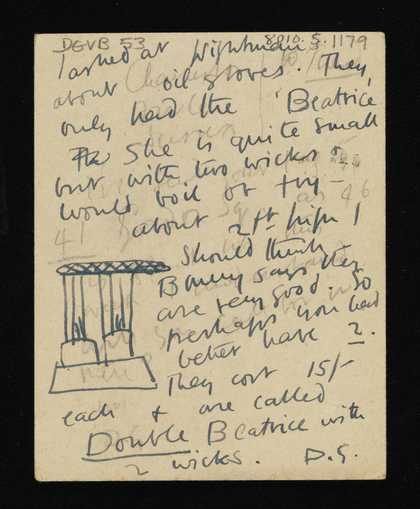 DGVB 53 8010.5.1179
I asked at Wightmans
about oil stoves. They
only had the 'Beatrice
She is quite small
but with two wicks &
would boil or fry -
about 2 ft high I
should think -
Bunny says they
are very good. So
perhaps you had
better have 2.
They cost 15/-
each & are called
Double Beatrice with
2 wicks. D.G.